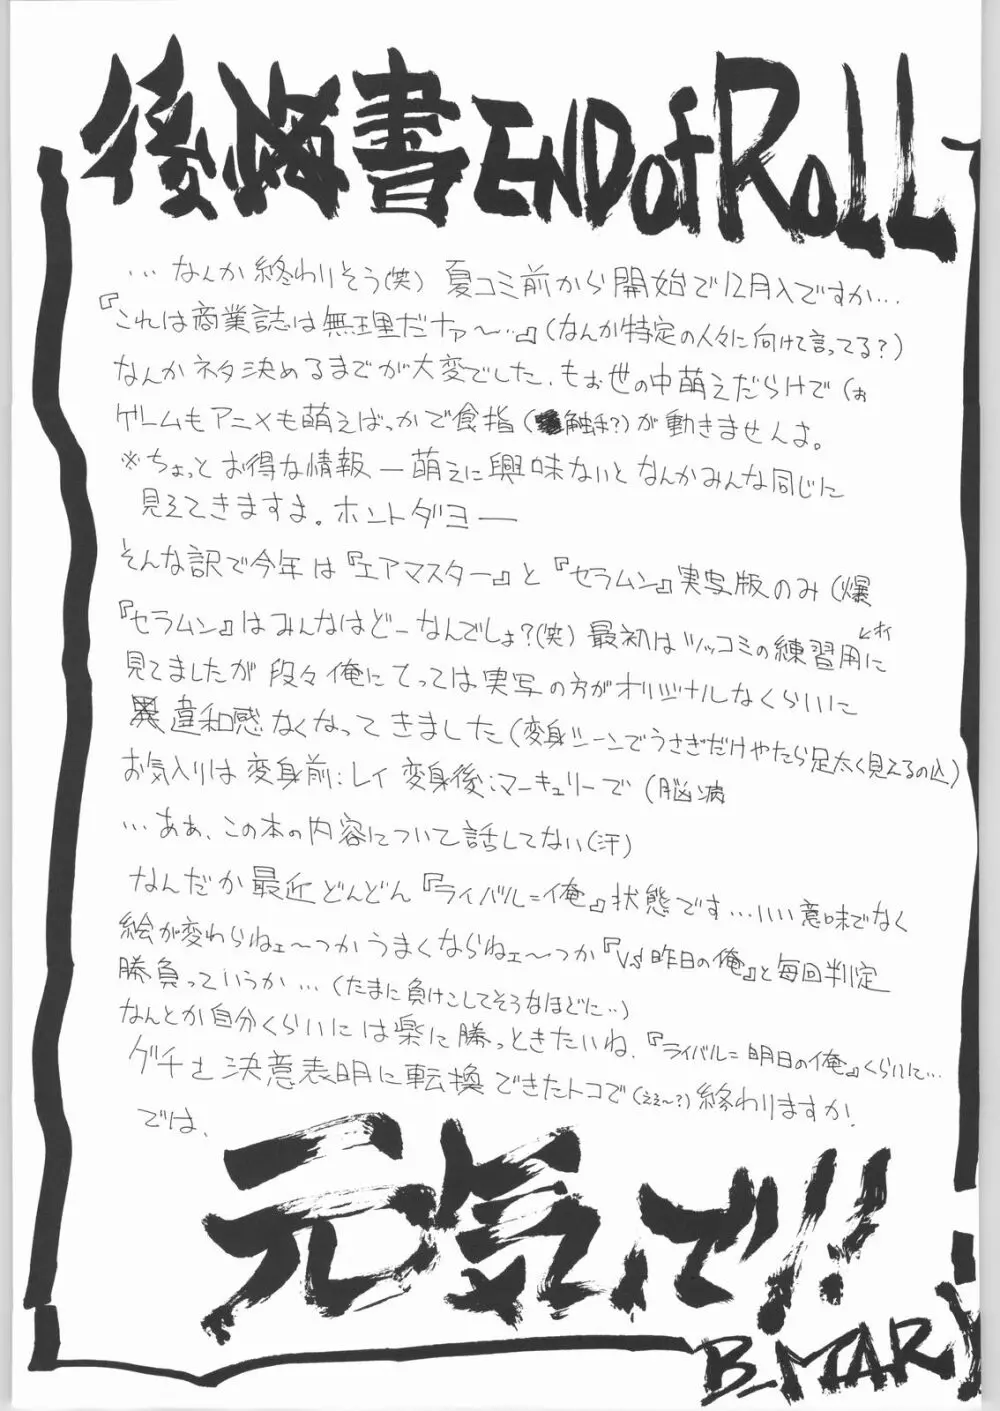 後悔書 END of RoLL
…なんか終わりそう(笑) 夏コミ前から開始で12月入ですか…
『これは商業誌は無理だナァ〜…』(なんか特定の人々に向けて言ってる?)
なんかネタ決めるまでが大変でした、もお世の中萌えだらけで(お
ゲームもアニメも萌えばっかで食指(触手?)が動きませんよ。
※ちょっとお得な情報―萌えに興味ないとなんかみんな同じに
見えてきますよ。ホントダヨー
そんな訳で今年は『エアマスター』と『セラムン』実写版のみ(爆
『セラムン』はみんなはどーなんでしょ?(笑) 最初はツッコミの練習用に
←オイ
見てましたが段々俺にとっては実写の方がオリジナルなくらいに
違和感なくなってきました(変身シーンでうさぎだけやたら足太く見えるの込)
お気入りは変身前:レイ 変身後:マーキュリーで (脳病
…ああ、この本の内容について話してない(汗)
なんだか最近どんどん『ライバル=俺』状態です…いい意味でなく
絵が変わらねェ〜つかうまくならねェ〜つか『VS昨日の俺』と毎回判定
勝負っていうか…(たまに負けこしてそうなほどに…)
なんとか自分くらいには楽に勝っときたいね、『ライバル=明日の俺』くらいに…
グチを決意表明に転換できたトコで(ええ〜?)終わりますか!
では、
元気で!!
B_MARY